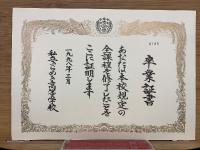 卒業証書
あなたは本校規定の
全課程を修了したことを
ここに証明します
一九九八年三月
私立きらめき高等学校